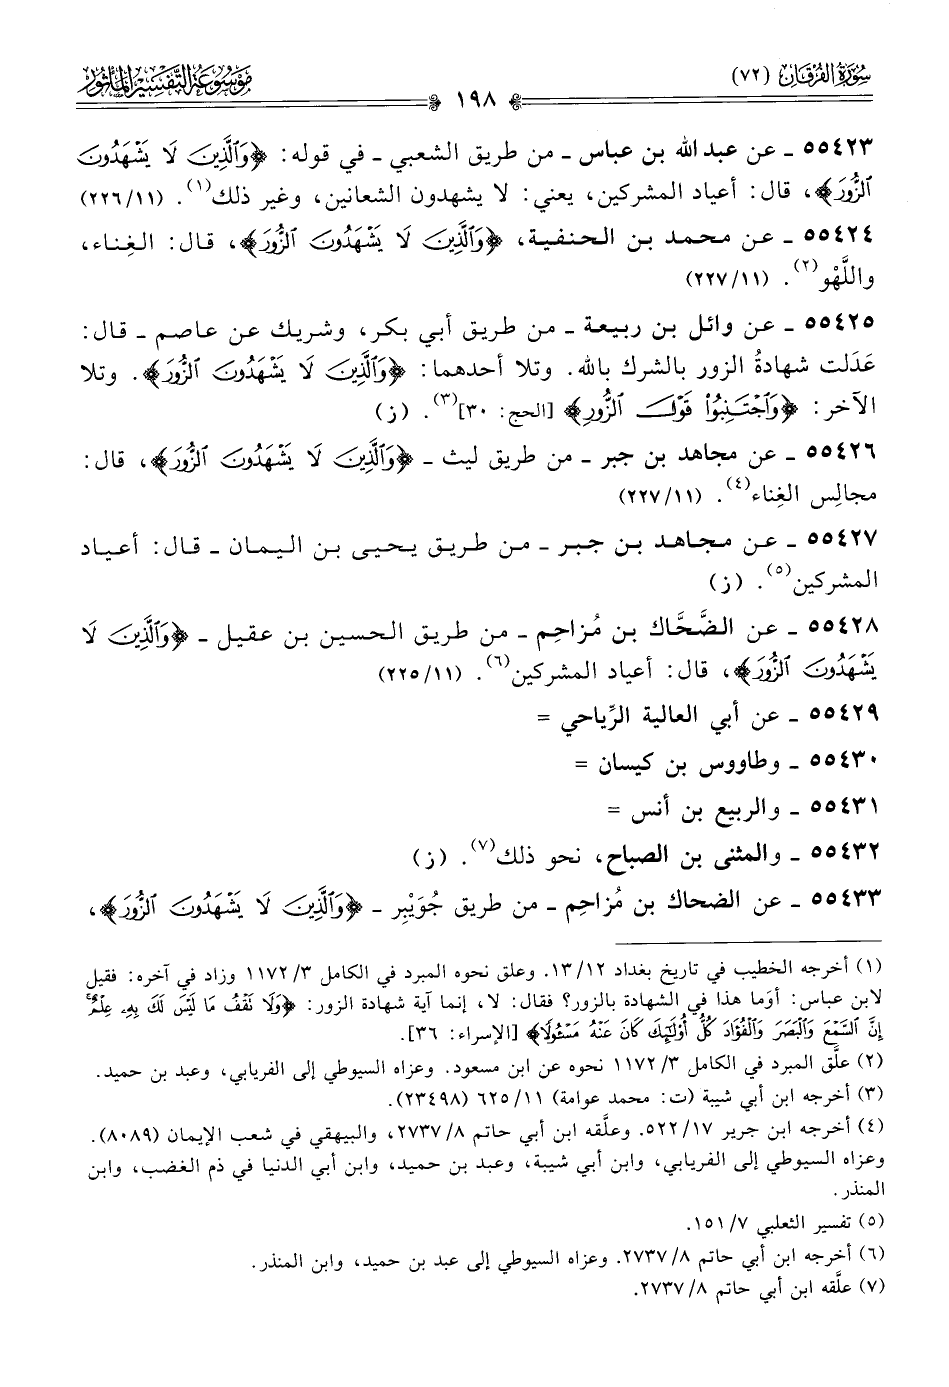 سُورَةُ الفُرْقَان (٧٢)
١٩٨
مَوْسُوعَة التَّفْسِير المَأْثُور
٥٥٤٢٣ ـ عن عبد الله بن عباس ـ من طريق الشعبي ـ في قوله: ﴿وَٱلَّذِينَ لَا يَشْهَدُونَ
ٱلزُّورَ﴾، قال: أعياد المشركين، يعني: لا يشهدون الشعانين، وغير ذلك(١). (٢٢٦/١١)
٥٥٤٢٤ ـ عن محمد بن الحنفية، ﴿وَٱلَّذِينَ لَا يَشْهَدُونَ ٱلزُّورَ﴾، قال: الغِناء،
واللَّهْو(٢). (٢٢٧/١١)
٥٥٤٢٥ ـ عن وائل بن ربيعة ـ من طريق أبي بكر، وشريك عن عاصم ـ قال:
عَدَلت شهادةُ الزور بالشرك بالله. وتلا أحدهما: ﴿وَٱلَّذِينَ لَا يَشْهَدُونَ ٱلزُّورَ﴾. وتلا
الآخر: ﴿وَٱجْتَنِبُوا۟ قَوْلَ ٱلزُّورِ﴾ [الحج: ٣٠](٣). (ز)
٥٥٤٢٦ ـ عن مجاهد بن جبر ـ من طريق ليث ـ ﴿وَٱلَّذِينَ لَا يَشْهَدُونَ ٱلزُّورَ﴾، قال:
مجالس الغِناء(٤). (٢٢٧/١١)
٥٥٤٢٧ ـ عن مجاهد بن جبر ـ من طريق يحيى بن اليمان ـ قال: أعياد
المشركين(٥). (ز)
٥٥٤٢٨ ـ عن الضَّحَّاك بن مُزاحِم ـ من طريق الحسين بن عقيل ـ ﴿وَٱلَّذِينَ لَا
يَشْهَدُونَ ٱلزُّورَ﴾، قال: أعياد المشركين(٦). (٢٢٥/١١)
٥٥٤٢٩ ـ عن أبي العالية الرِّياحي =
٥٥٤٣٠ ـ وطاووس بن كيسان =
٥٥٤٣١ ـ والربيع بن أنس =
٥٥٤٣٢ ـ والمثنى بن الصباح، نحو ذلك(٧). (ز)
٥٥٤٣٣ ـ عن الضحاك بن مُزاحِم ـ من طريق جُوَيْبِر ـ ﴿وَٱلَّذِينَ لَا يَشْهَدُونَ ٱلزُّورَ﴾،
(١) أخرجه الخطيب في تاريخ بغداد ١٣/١٢. وعلق نحوه المبرد في الكامل ١١٧٢/٣ وزاد في آخره: فقيل
لابن عباس: أوَما هذا في الشهادة بالزور؟ فقال: لا، إنما آية شهادة الزور: ﴿وَلَا نَقْفُ مَا لَيْسَ لَكَ بِهِۦ عِلْمٌ ۚ
إِنَّ ٱلسَّمْعَ وَٱلْبَصَرَ وَٱلْفُؤَادَ كُلُّ أُو۟لَٰٓئِكَ كَانَ عَنْهُ مَسْـُٔولًا﴾ [الإسراء: ٣٦].
(٢) علَّق المبرد في الكامل ١١٧٢/٣ نحوه عن ابن مسعود. وعزاه السيوطي إلى الفريابي، وعبد بن حميد.
(٣) أخرجه ابن أبي شيبة (ت: محمد عوامة) ٦٢٥/١١ (٢٣٤٩٨).
(٤) أخرجه ابن جرير ٥٢٢/١٧. وعلَّقه ابن أبي حاتم ٢٧٣٧/٨، والبيهقي في شعب الإيمان (٨٠٨٩).
وعزاه السيوطي إلى الفريابي، وابن أبي شيبة، وعبد بن حميد، وابن أبي الدنيا في ذم الغضب، وابن
المنذر.
(٥) تفسير الثعلبي ١٥١/٧.
(٦) أخرجه ابن أبي حاتم ٢٧٣٧/٨. وعزاه السيوطي إلى عبد بن حميد، وابن المنذر.
(٧) علَّقه ابن أبي حاتم ٢٧٣٧/٨.